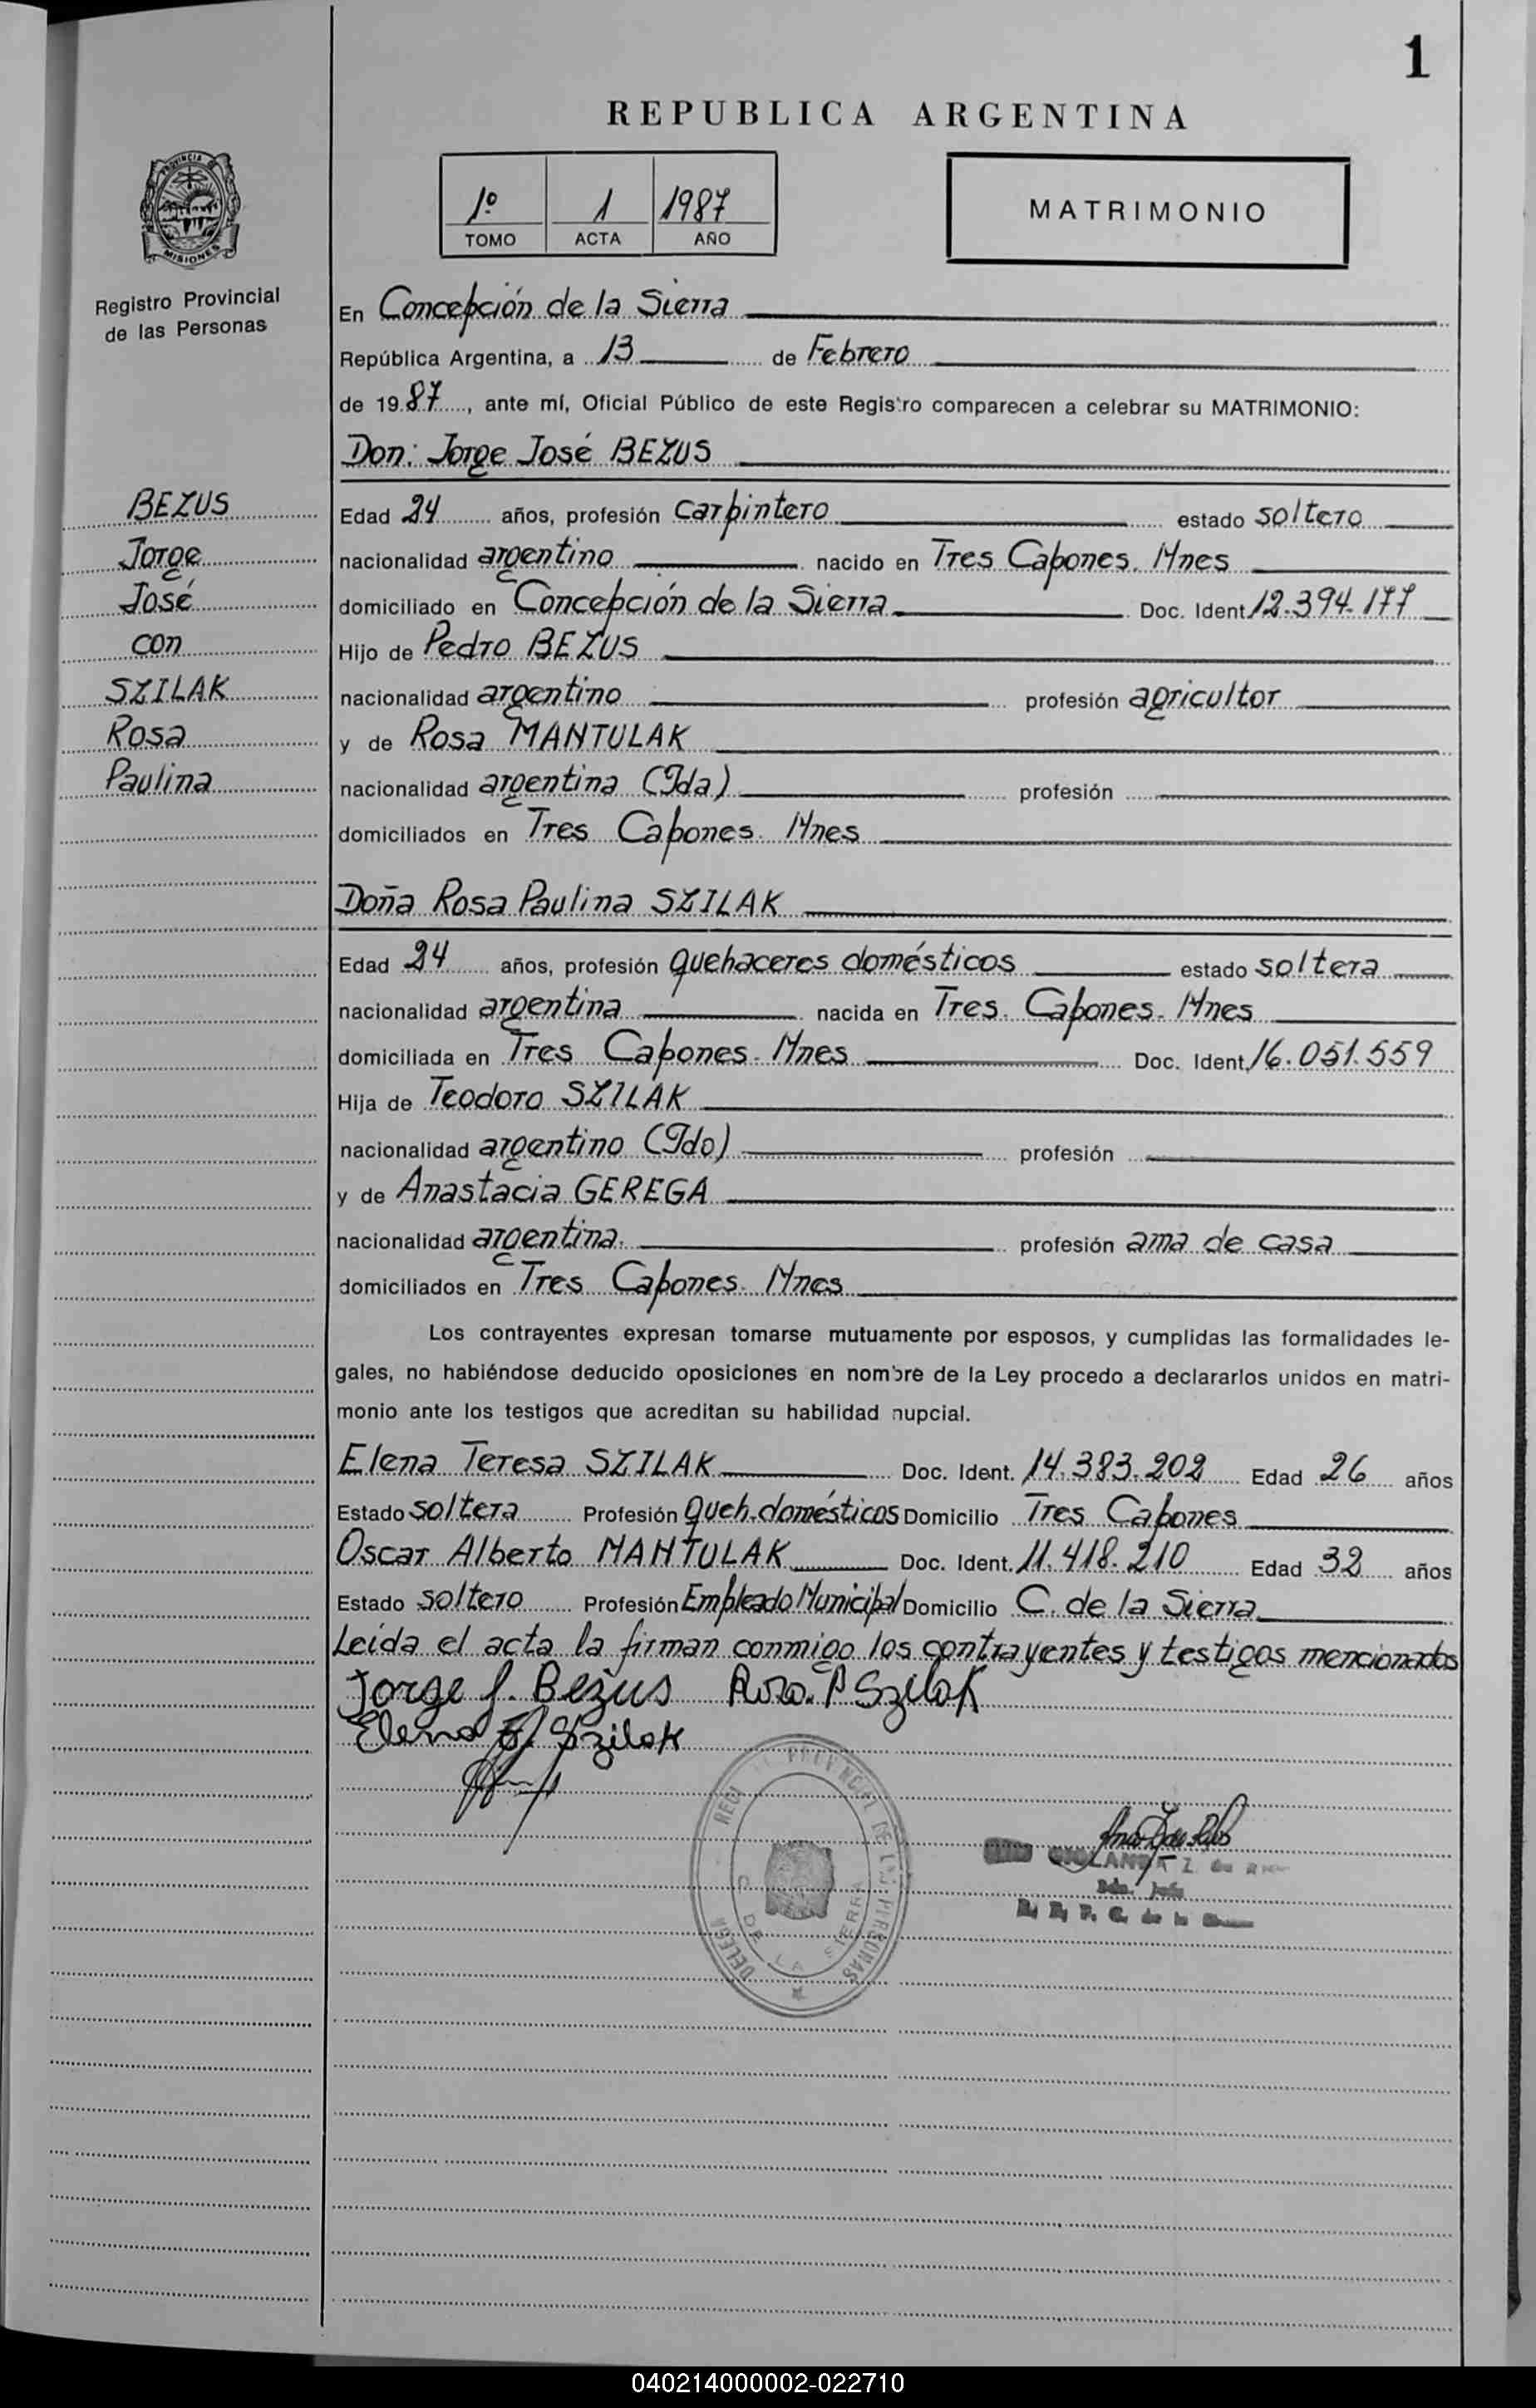 1
REPUBLICA ARGENTINA
1º 1 1987
TOMO ACTA AÑO
MATRIMONIO
PROVINCIA DE
MISIONES
Registro Provincial
de las Personas
En Concepción de la Sierra
República Argentina, a 13 de Febrero
de 1987, ante mí, Oficial Público de este Registro comparecen a celebrar su MATRIMONIO:
Don: Jorge José BEZUS
BEZUS
Jorge
José
con
SZILAK
Rosa
Paulina
Edad 24 años, profesión carpintero estado soltero
nacionalidad argentino nacido en Tres Capones. Mnes
domiciliado en Concepción de la Sierra Doc. Ident. 12.394.177
Hijo de Pedro BEZUS
nacionalidad argentino profesión agricultor
y de Rosa MANTULAK
nacionalidad argentina (Fda) profesión
domiciliados en Tres Capones. Mnes
Doña Rosa Paulina SZILAK
Edad 24 años, profesión quehaceres domésticos estado soltera
nacionalidad argentina nacida en Tres Capones. Mnes
domiciliada en Tres Capones. Mnes Doc. Ident. 16.051.559
Hija de Teodoro SZILAK
nacionalidad argentino (Fdo) profesión
y de Anastacia GEREGA
nacionalidad argentina. profesión ama de casa
domiciliados en Tres Capones. Mnes
Los contrayentes expresan tomarse mutuamente por esposos, y cumplidas las formalidades le-
gales, no habiéndose deducido oposiciones en nombre de la Ley procedo a declararlos unidos en matri-
monio ante los testigos que acreditan su habilidad nupcial.
Elena Teresa SZILAK Doc. Ident. 14.383.202 Edad 26 años
Estado soltera Profesión Queh. domésticos Domicilio Tres Capones
Oscar Alberto MANTULAK Doc. Ident. 11.418.210 Edad 32 años
Estado soltero Profesión Empleado Municipal Domicilio C. de la Sierra
Leída el acta la firman conmigo los contrayentes y testigos mencionados
Jorge J. Bezus Rosa. P Szilak
Elena T. Szilak
PROVINCIAL DE LAS PERSONAS
C. DE LA SIERRA
040214000002-022710